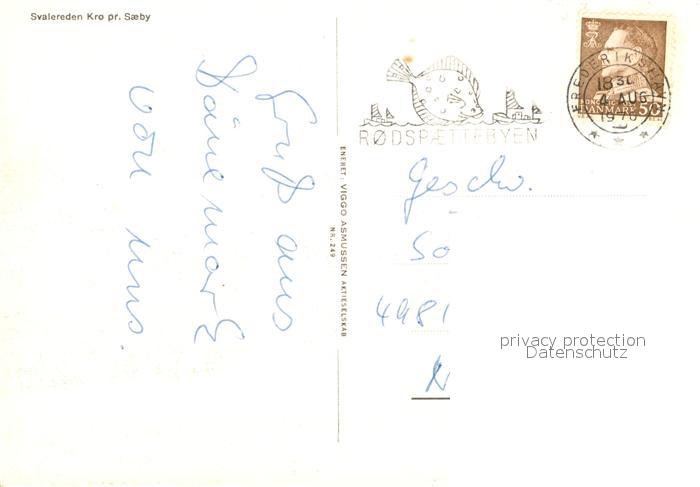 Svalereden Kro pr. Sæby
Gruß aus
Dänemark
von uns.
ENERET: VIGGO ASMUSSEN AKTIESELSKAB
NR. 249
RØDSPÆTTEBYEN
FREDERIKSHAVN
4 AUG
DANMARK 50
Geschw.
So
4981
privacy protection
Datenschutz